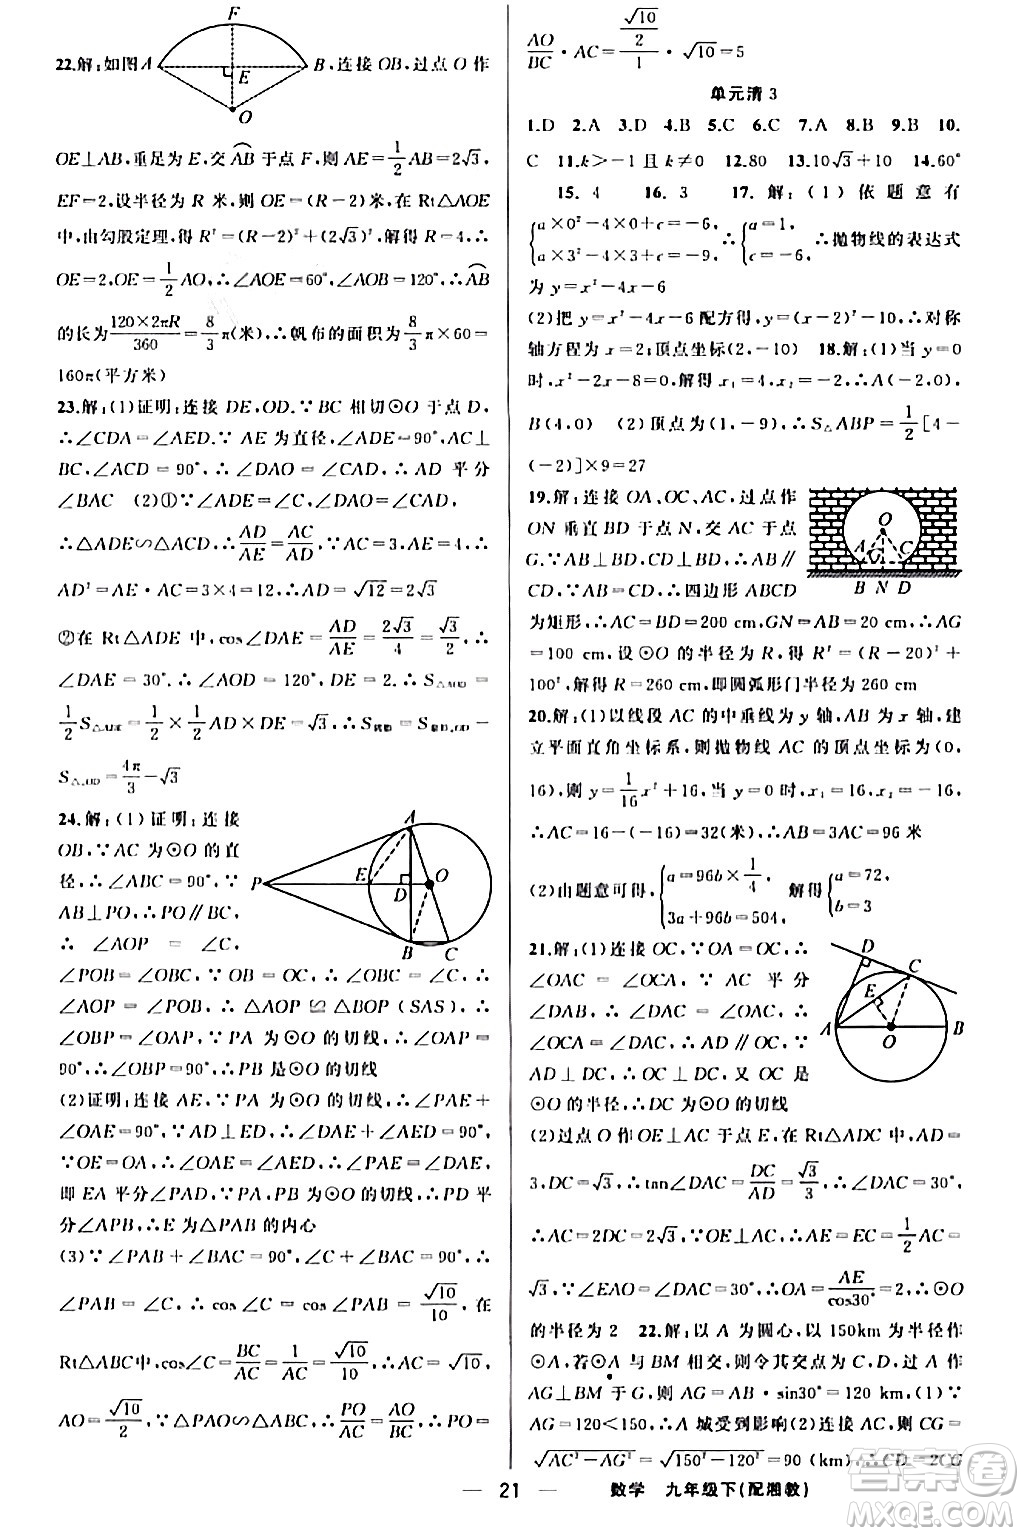 22.解:如图A B,连接OB,过点O作
F
E
O
OE⊥AB,垂足为E,交AB于点F,则AE=1/2AB=2√3,
EF=2,设半径为R米,则OE=(R-2)米,在Rt△AOE
中,由勾股定理,得R²=(R-2)²+(2√3)²,解得R=4,∴
OE=2,OE=1/2AO,∴∠AOE=60°,∠AOB=120°,∴AB
的长为120×2πR/360=8/3π(米),∴帆布的面积为8/3π×60=
160π(平方米)
23.解:(1)证明:连接DE,OD.∵BC相切⊙O于点D,
∴∠CDA=∠AED.∵AE为直径,∴∠ADE=90°,AC⊥
BC,∠ACD=90°,∴∠DAO=∠CAD,∴AD平分
∠BAC (2)①∵∠ADE=∠C,∠DAO=∠CAD,
∴△ADE∽△ACD,∴AD/AE=AC/AD,∵AC=3,AE=4,∴
AD²=AE·AC=3×4=12,∴AD=√12=2√3
②在Rt△ADE中,cos∠DAE=AD/AE=2√3/4=√3/2,∴
∠DAE=30°,∴∠AOD=120°,DE=2.∴S△AOD=
1/2S△ADE=1/2×1/2AD×DE=√3,∴S阴影=S扇形AOD-
S△AOD=4π/3-√3
24.解:(1)证明:连接
OB,∵AC为⊙O的直
径,∴∠ABC=90°,∵
AB⊥PO,∴PO∥BC,
∴∠AOP=∠C,
A
E
P
D
O
B
C
∠POB=∠OBC,∵OB=OC,∴∠OBC=∠C,∴
∠AOP=∠POB,∴△AOP≌△BOP(SAS),∴
∠OBP=∠OAP,∵PA为⊙O的切线,∴∠OAP=
90°,∴∠OBP=90°,∴PB是⊙O的切线
(2)证明:连接AE,∵PA为⊙O的切线,∴∠PAE+
∠OAE=90°,∵AD⊥ED,∴∠EAD+∠AED=90°,
∵OE=OA,∴∠OAE=∠AED,∴∠PAE=∠DAE,
即EA平分∠PAD,∵PA,PB为⊙O的切线,∴PD平
分∠APB,∴E为△PAB的内心
(3)∵∠PAB+∠BAC=90°,∠C+∠BAC=90°,∴
∠PAB=∠C,∴cos∠C=cos∠PAB=√10/10,在
Rt△ABC中,cos∠C=BC/AC=1/AC=√10/10,∴AC=√10,
AO=√10/2,∵△PAO∽△ABC,∴PO/AC=AO/BC,∴PO=
AO/BC·AC=√10/2/1·√10=5
单元清3
1.D 2.A 3.D 4.B 5.C 6.C 7.A 8.B 9.B 10.
C 11.k>-1且k≠0 12.80 13.10√3+10 14.60°
15.4 16.3 17.解:(1)依题意有
{a×0²-4×0+c=-6, a×3²-4×3+c=-9, ∴{a=1, c=-6, ∴抛物线的表达式
为y=x²-4x-6
(2)把y=x²-4x-6配方得,y=(x-2)²-10,∴对称
轴方程为x=2;顶点坐标(2,-10) 18.解:(1)当y=0
时,x²-2x-8=0,解得x₁=4,x₂=-2,∴A(-2,0),
B(4,0) (2)顶点为(1,-9),∴S△ABP=1/2[4-
(-2)]×9=27
19.解:连接OA,OC,AC,过点O作
ON垂直BD于点N,交AC于点
G.∵AB⊥BD,CD⊥BD,∴AB∥
CD,∵AB=CD,∴四边形ABCD
O
A G C
B N D
为矩形,∴AC=BD=200cm,GN=AB=20cm,∴AG
=100cm,设⊙O的半径为R,得R²=(R-20)²+
100²,解得R=260cm,即圆弧形门半径为260cm
20.解:(1)以线段AC的中垂线为y轴,AC为x轴,建
立平面直角坐标系,则抛物线AC的顶点坐标为(0,
16),则y=1/16x²+16,当y=0时,x₁=16,x₂=-16,
∴AC=16-(-16)=32(米),AB=3AC=96米
(2)由题意可得,{a=96b×1/4, 3a+96b=504, 解得{a=72, b=3
21.解:(1)连接OC,∵OA=OC,∴
∠OAC=∠OCA,∵AC平分
∠DAB,∴∠DAC=∠OAC,∴
∠OCA=∠DAC,∴AD∥OC,∵
AD⊥DC,∴OC⊥DC,又OC是
⊙O的半径,∴DC为⊙O的切线
D
C
E
A
O
B
(2)过点O作OE⊥AC于点E,在Rt△ADC中,AD=
3,DC=√3,∴tan∠DAC=DC/AD=√3/3,∴∠DAC=30°,
∴AC=2DC=2√3,∵OE⊥AC,∴AE=1/2AC=
√3,∵∠EAO=∠DAC=30°,∴OA=AE/cos30°=2,∴⊙O
的半径为2 22.解:以A为圆心,以150km为半径作
⊙A,若⊙A与BM相交,则令其交点为C,D,过A作
AG⊥BM于G,则AG=AB·sin30°=120km,(1)∵
AG=120<150,∴A城受到影响(2)连接AC,则CG=
√AC²-AG²=√150²-120²=90(km),∴CD=2CG
21 数学 九年级下(配湘教)
答案圈
MXQE.COM